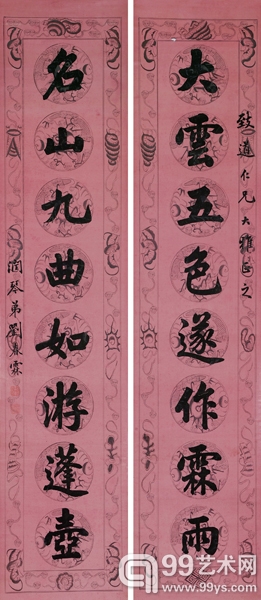 致道仁兄大雅正之
大雲五色遂作霖雨
名山九曲如游蓬壺
潤琴弟劉春霖
99艺术网
www.99ys.com